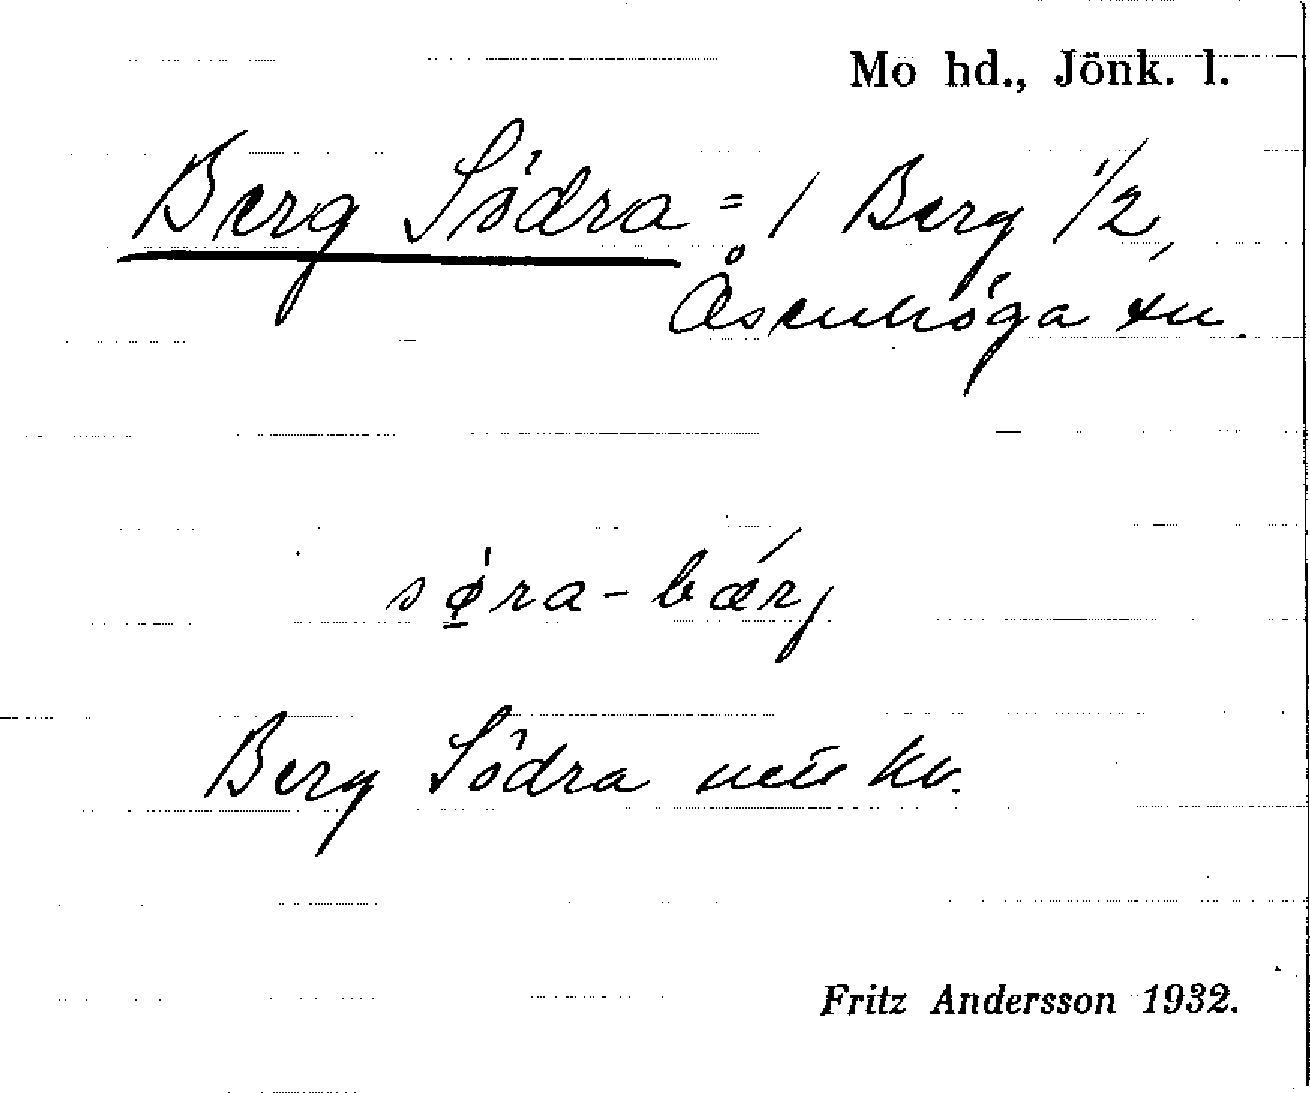 Mo hd., Jönk. l.
Berg Södra = 1 Berg 1/2,
Åsenhöga sn.
sø̱ra-bærj
Berg Södra
Fritz Andersson 1932.